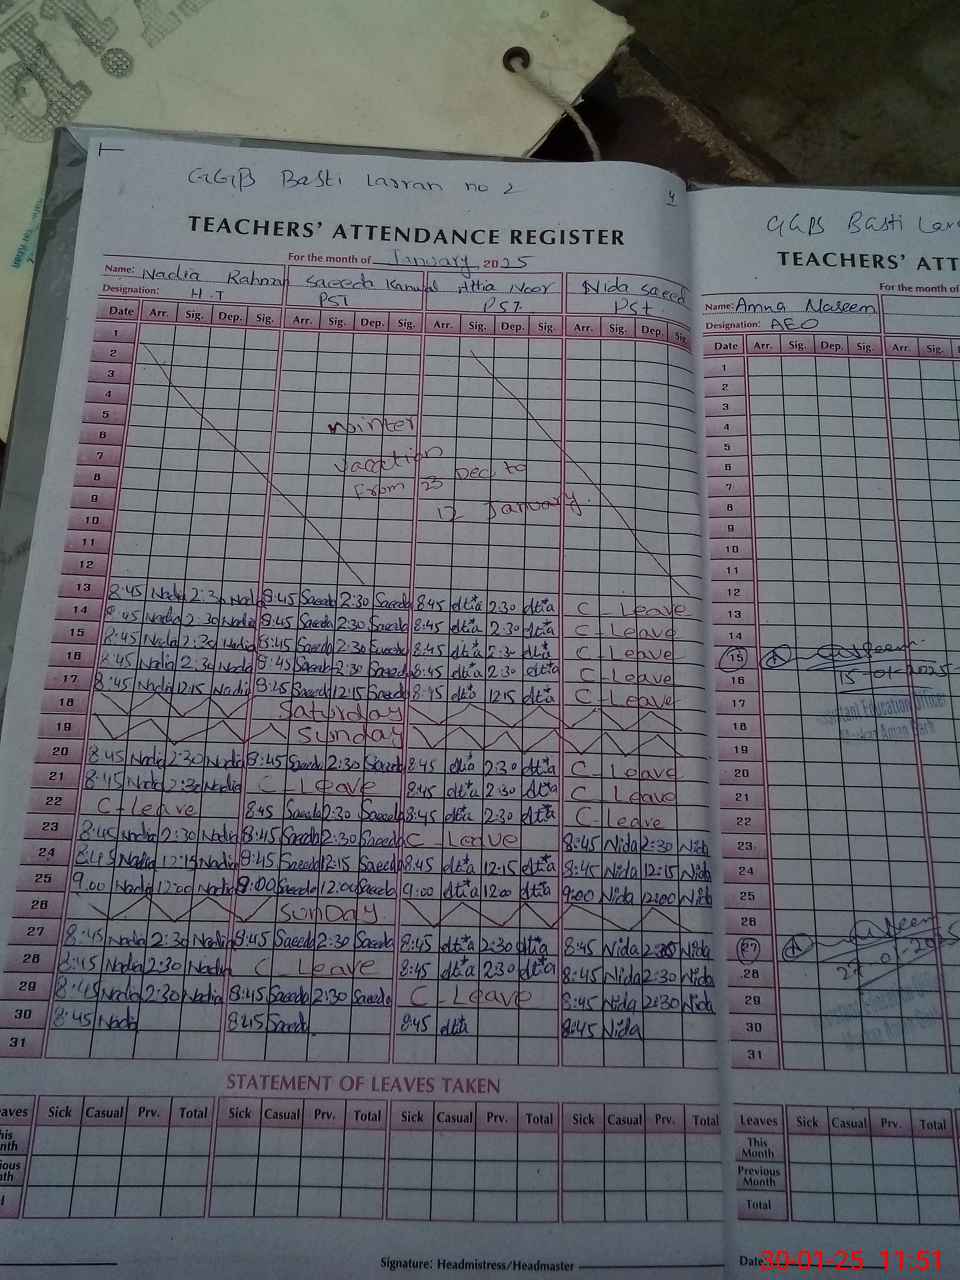 GGPS Basti Lasran no 2
4
TEACHERS' ATTENDANCE REGISTER
For the month of January 2025
Name: Nadia Rahman Saeeda Kanwal Attia Noor Nida Saeed
Designation: H.T PST PST. PST
Date Arr. Sig. Dep. Sig. Arr. Sig. Dep. Sig. Arr. Sig. Dep. Sig. Arr. Sig. Dep. Sig.
1
2
3
4
5
6
7
8
9
10
11
12
Winter
vacation
From 23 Dec to
12 January.
13 8:45 Nadia 2:30 Nadia 8:45 Saeeda 2:30 Saeeda 8:45 Attia 2:30 Attia C-Leave
14 8:45 Nadia 2:30 Nadia 8:45 Saeeda 2:30 Saeeda 8:45 Attia 2:30 Attia C-Leave
15 8:45 Nadia 2:30 Nadia 8:45 Saeeda 2:30 Saeeda 8:45 Attia 2:30 Attia C-Leave
16 8:45 Nadia 2:30 Nadia 8:45 Saeeda 2:30 Saeeda 8:45 Attia 2:30 Attia C-Leave
17 8:45 Nadia 12:15 Nadia 8:45 Saeeda 12:15 Saeeda 8:45 Attia 12:15 Attia C-Leave
18 Saturday
19 Sunday
20 8:45 Nadia 2:30 Nadia 8:45 Saeeda 2:30 Saeeda 8:45 Attia 2:30 Attia C-Leave
21 8:45 Nadia 2:30 Nadia C-Leave 8:45 Attia 2:30 Attia C-Leave
22 C-Leave 8:45 Saeeda 2:30 Saeeda 8:45 Attia 2:30 Attia C-Leave
23 8:45 Nadia 2:30 Nadia 8:45 Saeeda 2:30 Saeeda C-Leave 8:45 Nida 2:30 Nida
24 8:45 Nadia 12:15 Nadia 8:45 Saeeda 12:15 Saeeda 8:45 Attia 12:15 Attia 8:45 Nida 12:15 Nida
25 9:00 Nadia 12:00 Nadia 9:00 Saeeda 12:00 Saeeda 9:00 Attia 12:00 Attia 9:00 Nida 12:00 Nida
26 Sunday
27 8:45 Nadia 2:30 Nadia 8:45 Saeeda 2:30 Saeeda 8:45 Attia 2:30 Attia 8:45 Nida 2:30 Nida
28 8:45 Nadia 2:30 Nadia C-Leave 8:45 Attia 2:30 Attia 8:45 Nida 2:30 Nida
29 8:45 Nadia 2:30 Nadia 8:45 Saeeda 2:30 Saeeda C-Leave 8:45 Nida 2:30 Nida
30 8:45 Nadia 8:45 Saeeda 8:45 Attia 8:45 Nida
31
STATEMENT OF LEAVES TAKEN
eaves Sick Casual Prv. Total Sick Casual Prv. Total Sick Casual Prv. Total Sick Casual Prv. Total
Signature: Headmistress/Headmaster
GGPS Basti
TEACHERS' ATT
For the month of
Name: Amna Naseem
Designation: AEO
Date Arr. Sig. Dep. Sig. Arr. Sig.
1
2
3
4
5
6
7
8
9
10
11
12
13
14
15 A Naseem
16 15-01-2025
17
18
19
20
21
22
23
24
25
26
27 A Naseem
28 27-01-2025
29
30
31
Leaves Sick Casual Prv. Total
This Month
Previous Month
Total
Date:
30-01-25 11:51